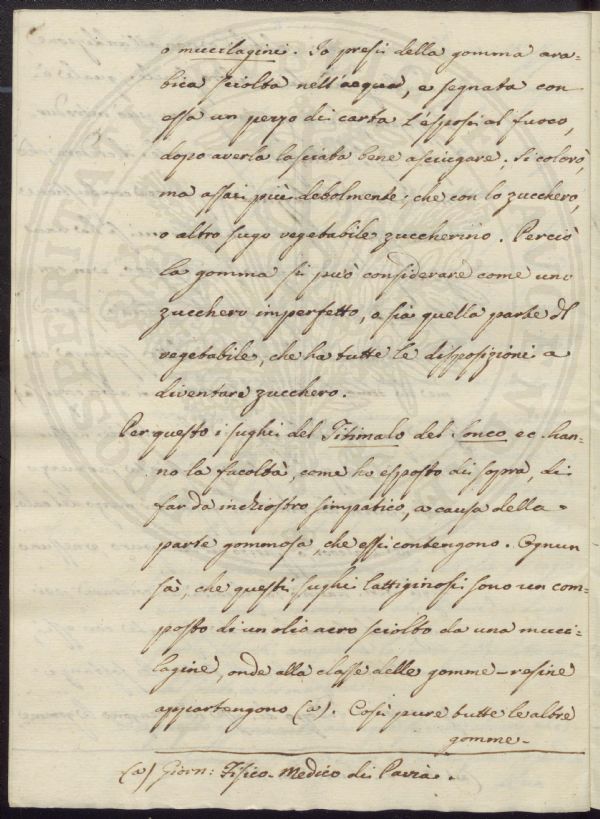 o mucilagini. Io presi della gomma ara-
bica sciolta nell'acqua, e segnata con
essa un pezzo di carta l'esposi al fuoco,
dopo averla lasciata bene asciugare. Si colorò,
ma assai più debolmente, che con lo zucchero,
o altro sugo vegetabile zuccherino. Perciò
la gomma si può considerare come uno
zucchero imperfetto, o sia quella parte dl
vegetabile, che ha tutte le disposizioni a
diventare zucchero.
Per questo i sughi del Titimalo del Sonco ec. han-
no la facoltà, come ho esposto di sopra, di
far da inchiostro simpatico, a causa della
parte gommosa, che essi contengono. Ognun
sà, che questi sughi lattiginosi sono un com-
posto di un olio acro sciolto da una muci-
lagine, onde alla classe delle gomme-resine
appartengono (a). Così pure tutte le altre
gomme-
(a) Giorn: Fisico-Medico di Pavia.